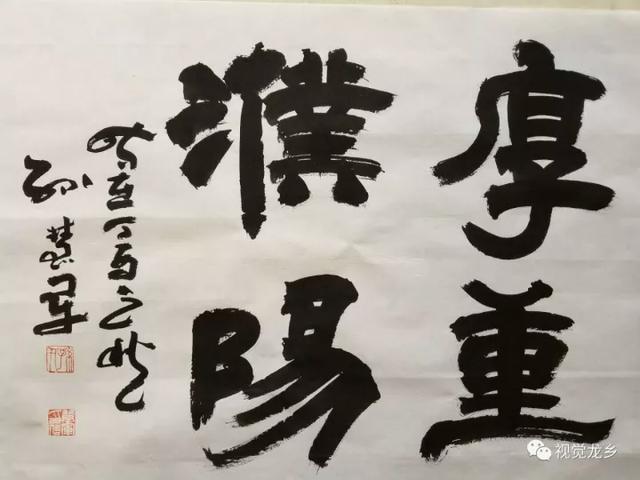 厚重
濮阳
时在丁酉之秋
孙慧军
视觉龙乡